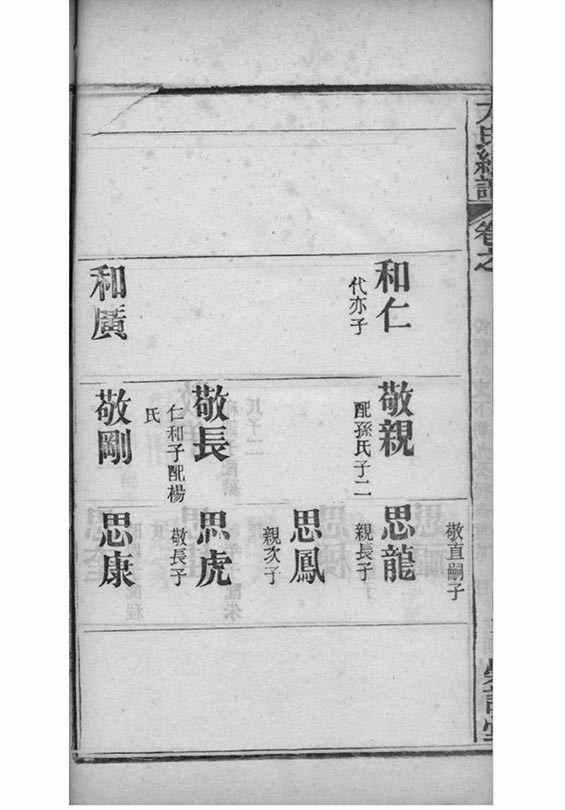 氏統譜
卷之
和仁
代亦子
和廣
敬親
配孫氏子二
敬長
仁和子配楊
氏
敬剛
敬直嗣子
思龍
親長子
思鳳
親次子
思虎
敬長子
思康